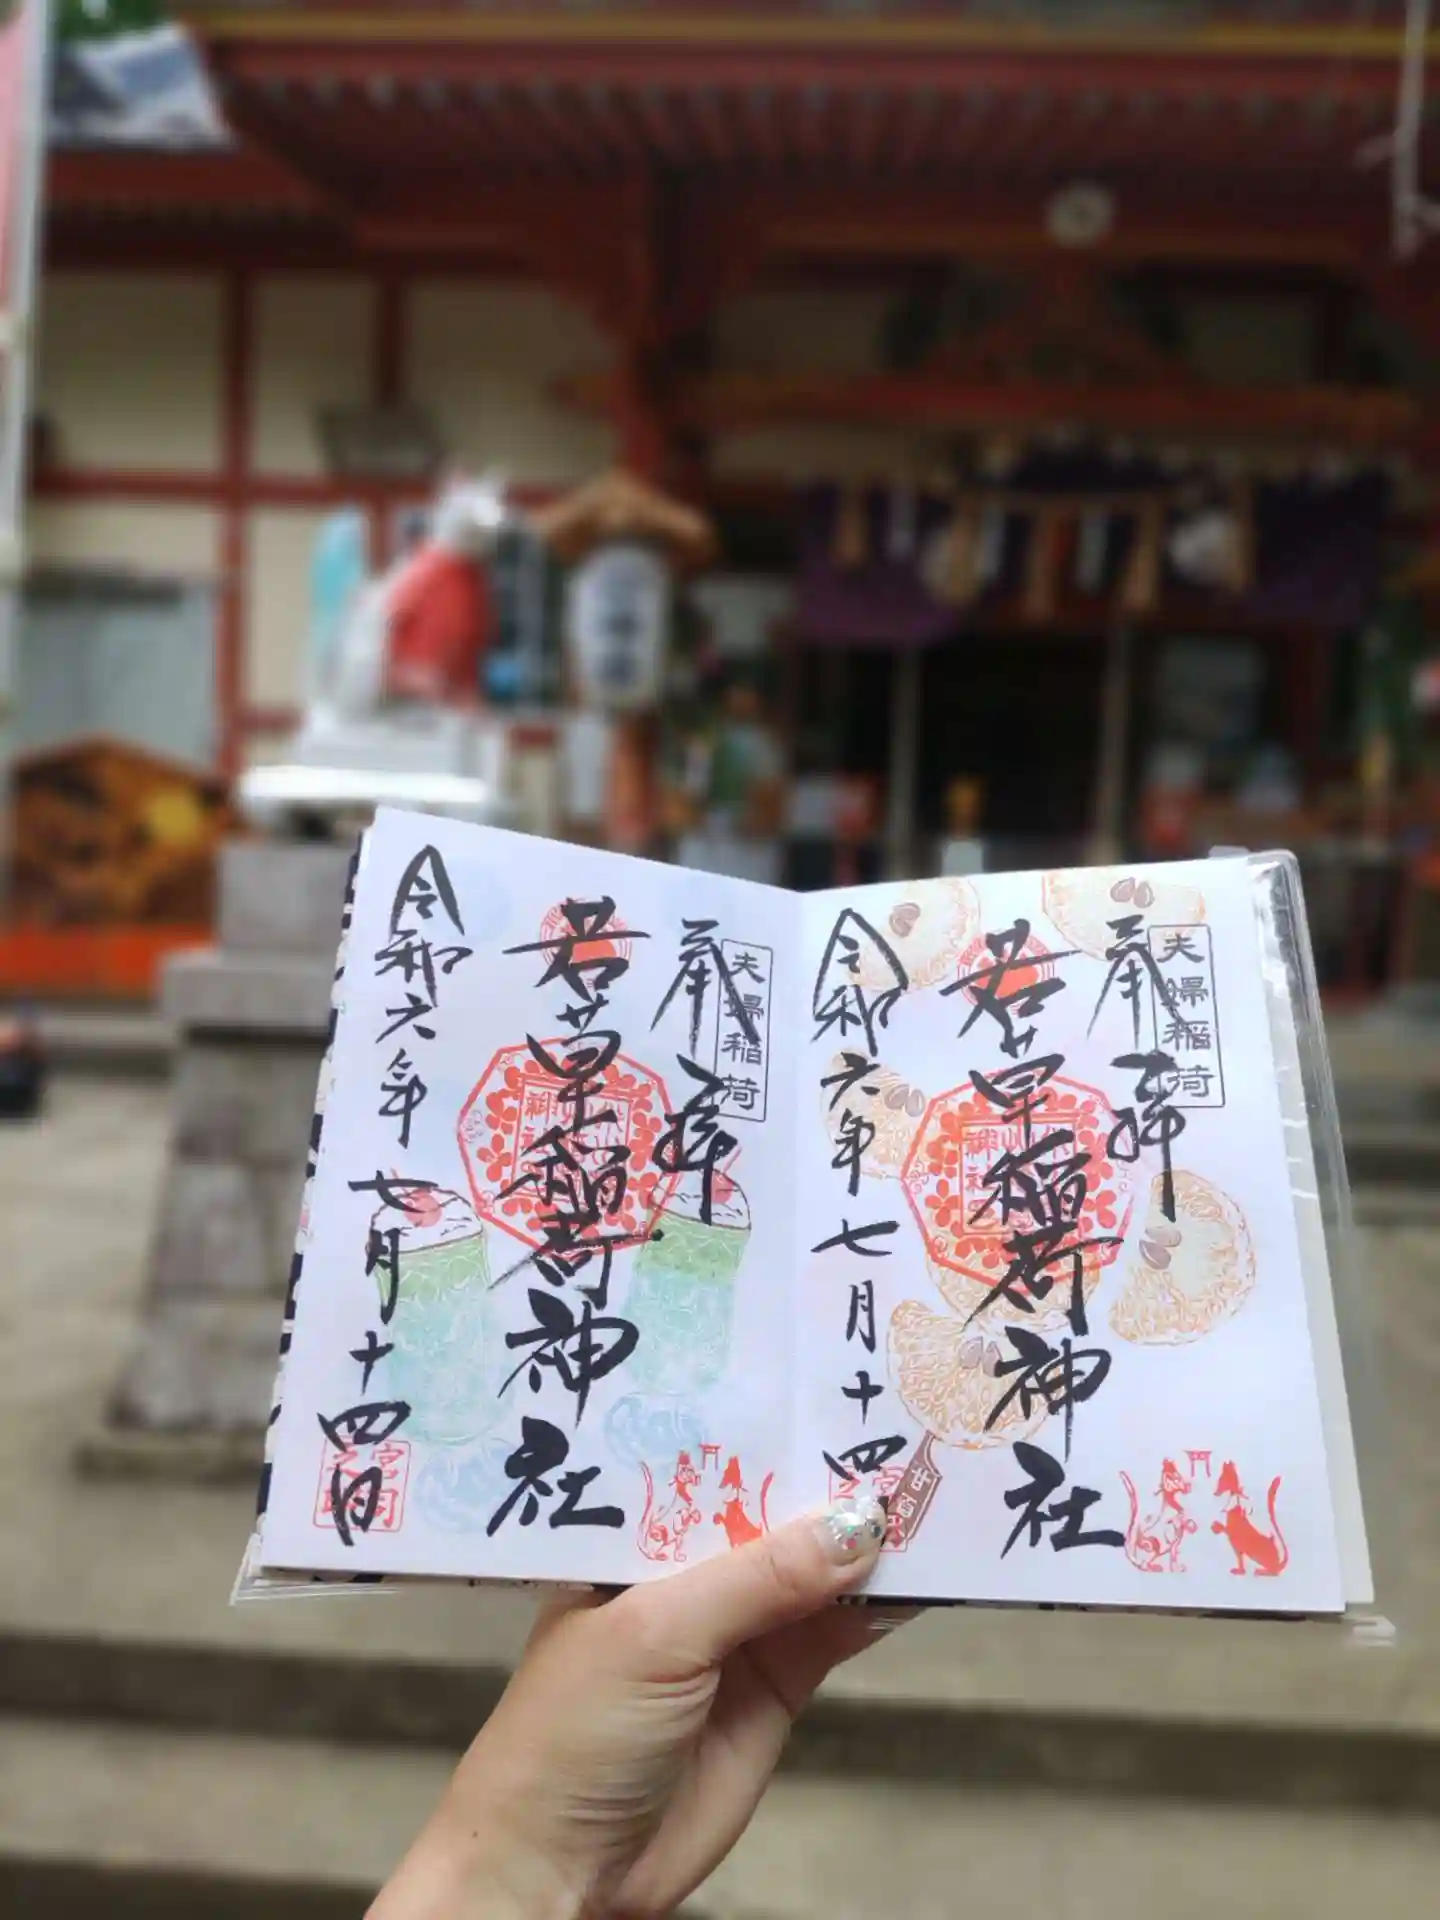 夫婦稲荷
奉拝
若草稲荷神社
令和六年七月十四日
夫婦稲荷
奉拝
若草稲荷神社
令和六年七月十四